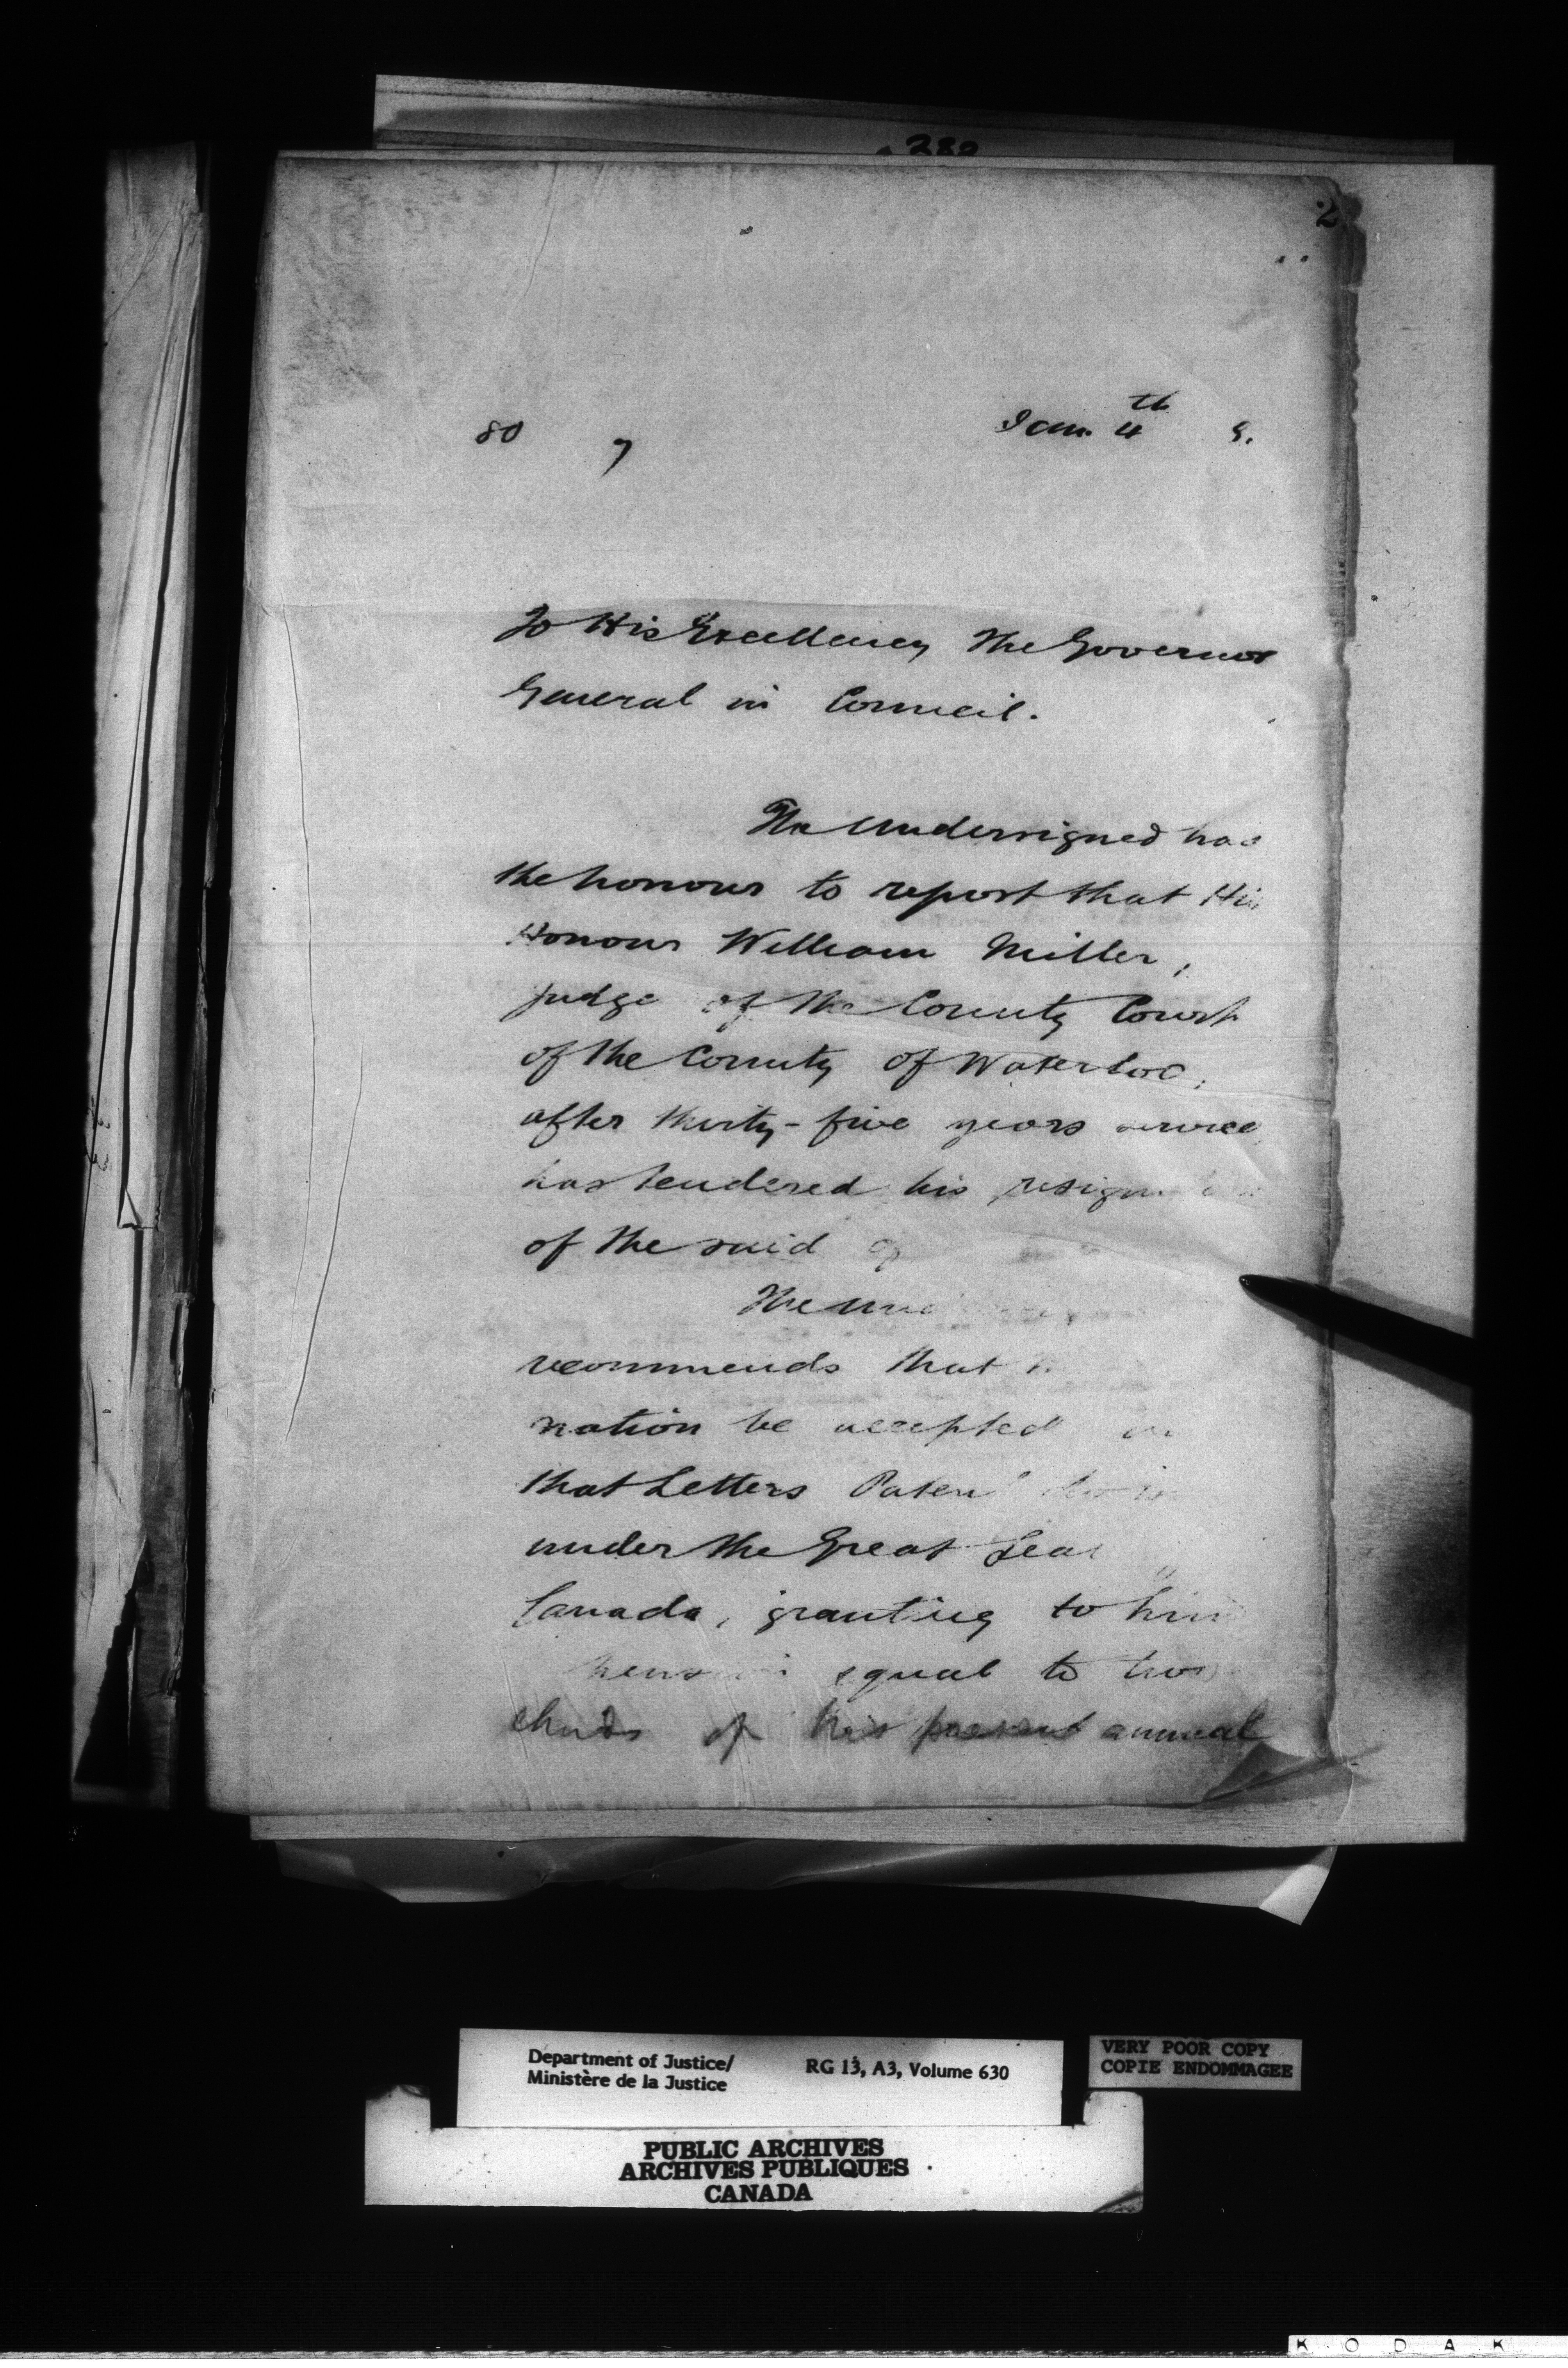 2
80 7 Jan. 4th 8.
To His Excellency The Governor
General in Council.
The Undersigned has
the honour to report that His
Honour William Miller,
judge of the County Court
of the County of Waterloo,
after thirty-five years service
has tendered his resign
of the said
The Und
recommends that
nation be accepted
that Letters Paten
under the Great Seal
Canada, granting to him
pension equal to two
thirds of his present annual
Department of Justice/ RG 13, A3, Volume 630
Ministère de la Justice
VERY POOR COPY
COPIE ENDOMMAGEE
PUBLIC ARCHIVES
ARCHIVES PUBLIQUES
CANADA
KODAK